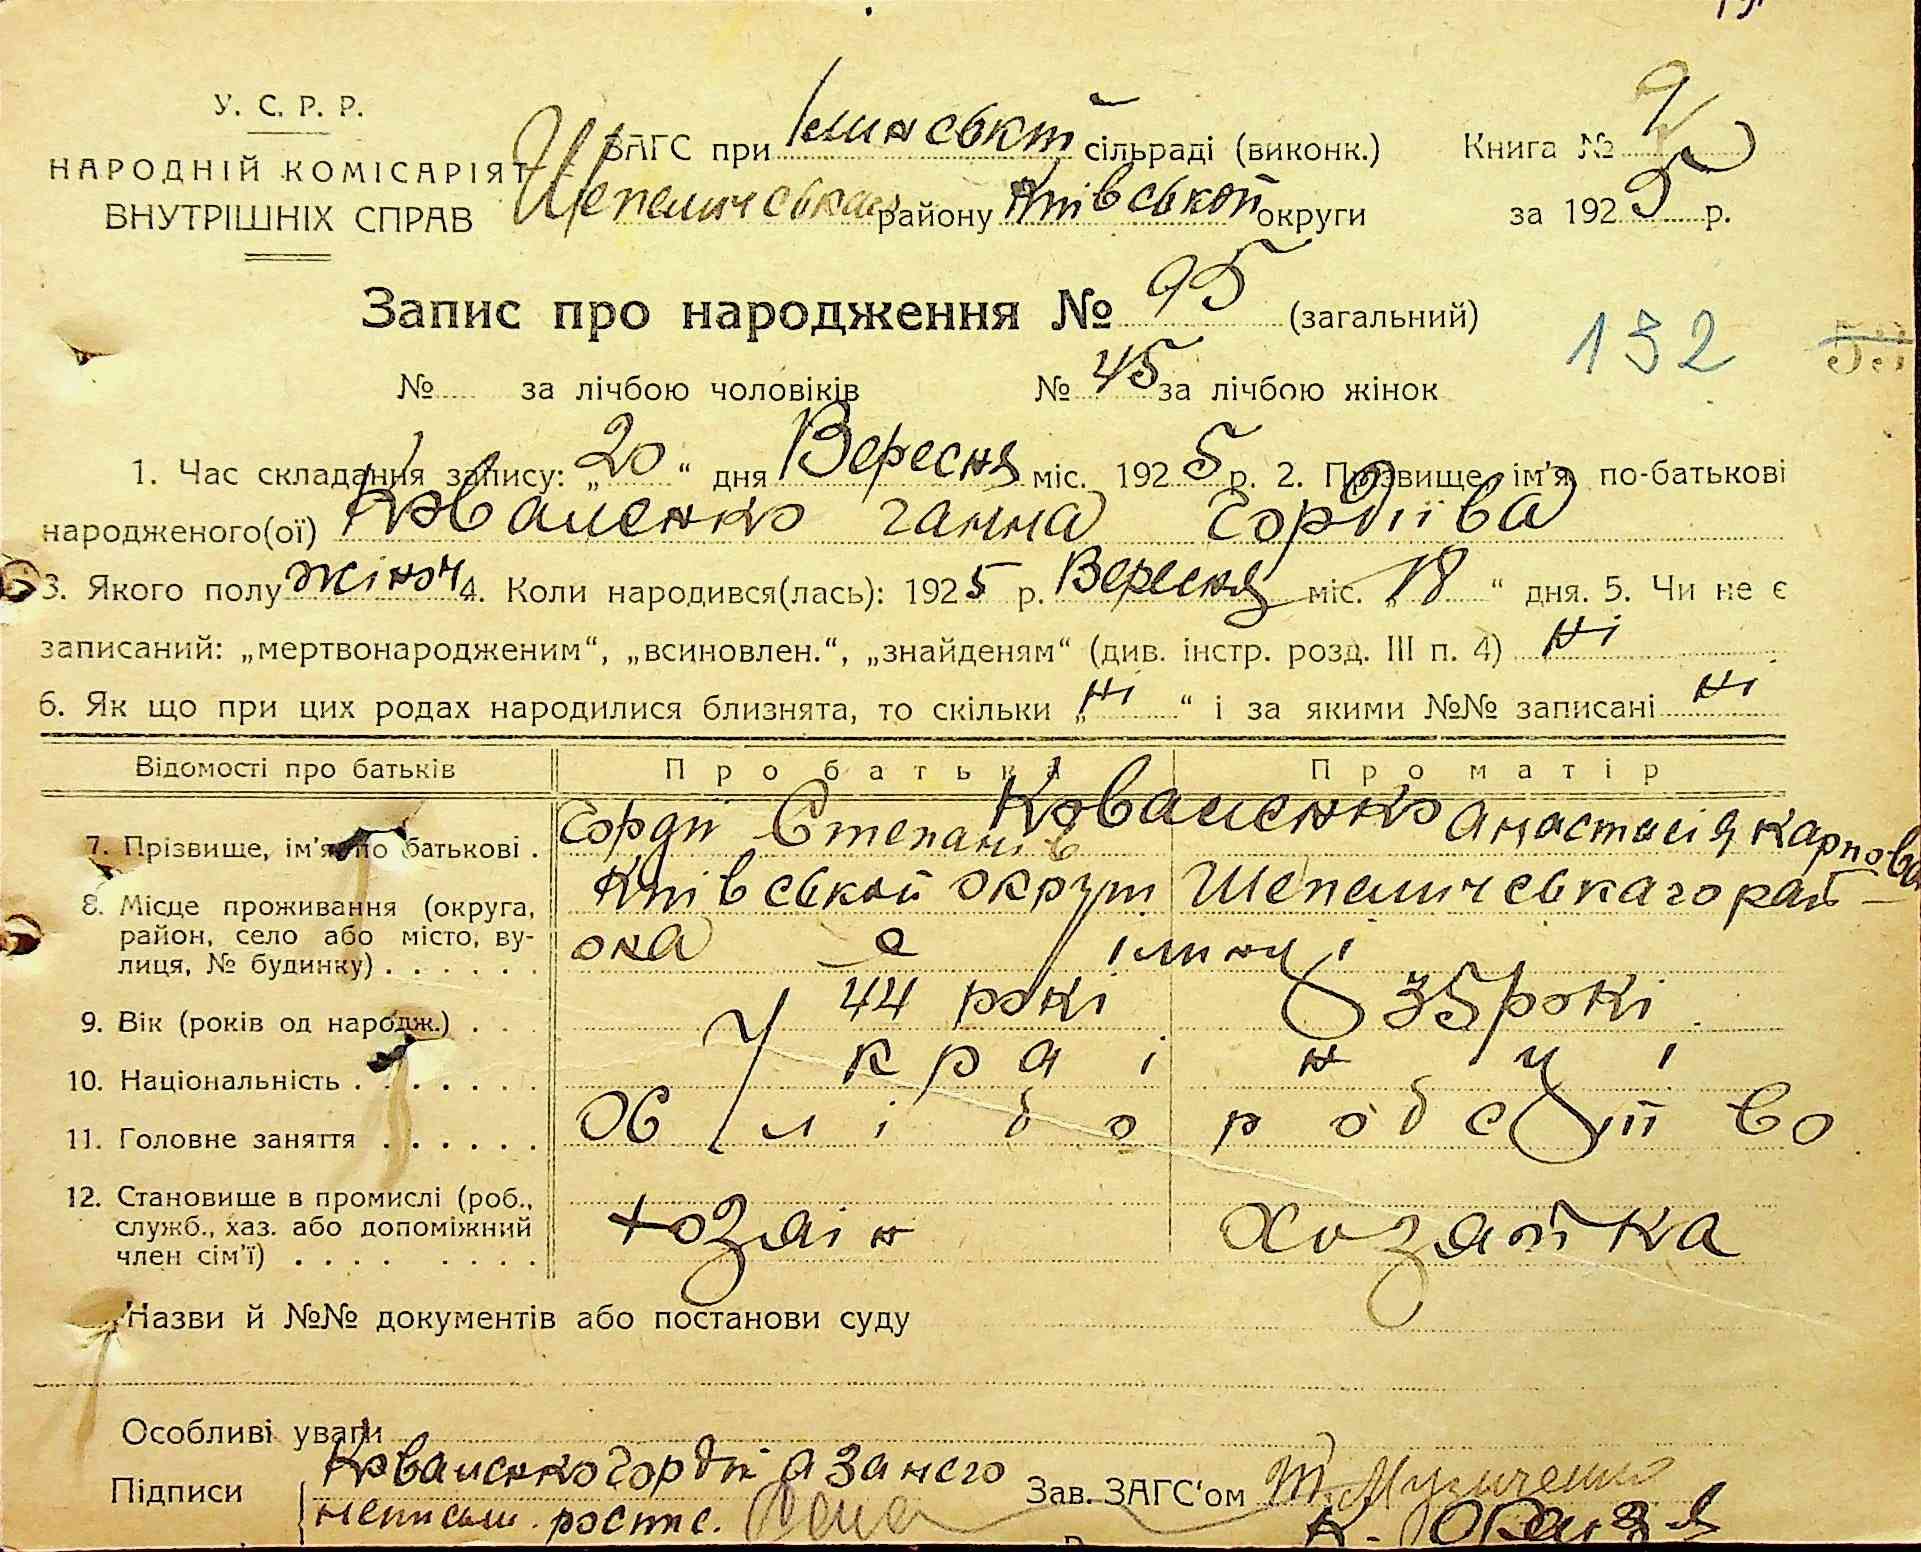 У. С. Р. Р.
НАРОДНІЙ КОМІСАРІЯТ
ВНУТРІШНІХ СПРАВ
ЗАГС при Ілинській сільраді (виконк.)
Шепеличської району Київської округи
Книга №
за 1925 р.
Запис про народження № 95 (загальний)
132
№ за лічбою чоловіків № 45 за лічбою жінок
1. Час складання запису: „20“ дня Вересня міс. 1925 р. 2. Прізвище, ім'я, по-батькові
народженого(ої) Коваленко ганна Гордіїва
3. Якого полу жіноч 4. Коли народився(лась): 1925 р. Вересня міс. „18“ дня. 5. Чи не є
записаний: „мертвонародженим“, „всиновлен.“, „знайденям“ (див. інстр. розд. III п. 4) ні
6. Як що при цих родах народилися близнята, то скільки „ні“ і за якими №№ записані ні
Відомості про батьків Про батька Про матір
7. Прізвище, ім'я по батькові . Гордій Степанів Коваленко Анастасія карпова
8. Місце проживання (округа, район, село або місто, вулиця, № будинку) . . . . . . Київської округи Шепеличськаго район
она с ілинці
9. Вік (років од народж.) . . 44 рокі 35 рокі
10. Національність . . . . . . . Украінці
11. Головне заняття . . . . . . Хліборобс
12. Становище в промислі (роб., служб., хаз. або допоміжний член сім'ї) . . . . . . . . хозяін хозяйка
Назви й №№ документів або постанови суду
Особливі уваги
Підписи Коваленко Гордій а за него
неписьм. роспис. Зав. ЗАГС'ом Музиченко